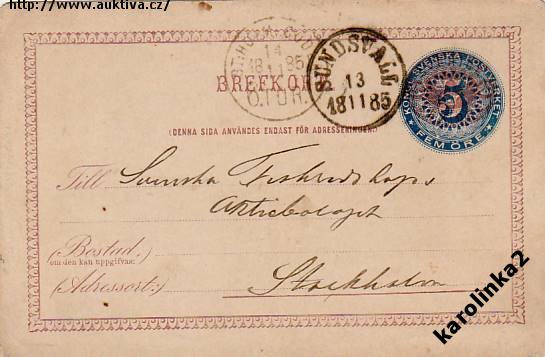 http://www.auktiva.cz/
BREFKORT
SUNDSVALL
13
18 11 85
14
18 11 85
Ö.TUR.
KONGL. SVENSKA POSTVERKET
5
FEM ÖRE
(DENNA SIDA ANVÄNDES ENDAST FÖR ADRESSERINGEN.)
Till Svenska Fiskredskaps
Aktiebolaget
(Bostad,
om den kan uppgifvas:)
(Adressort:) Stockholm
karolinka2